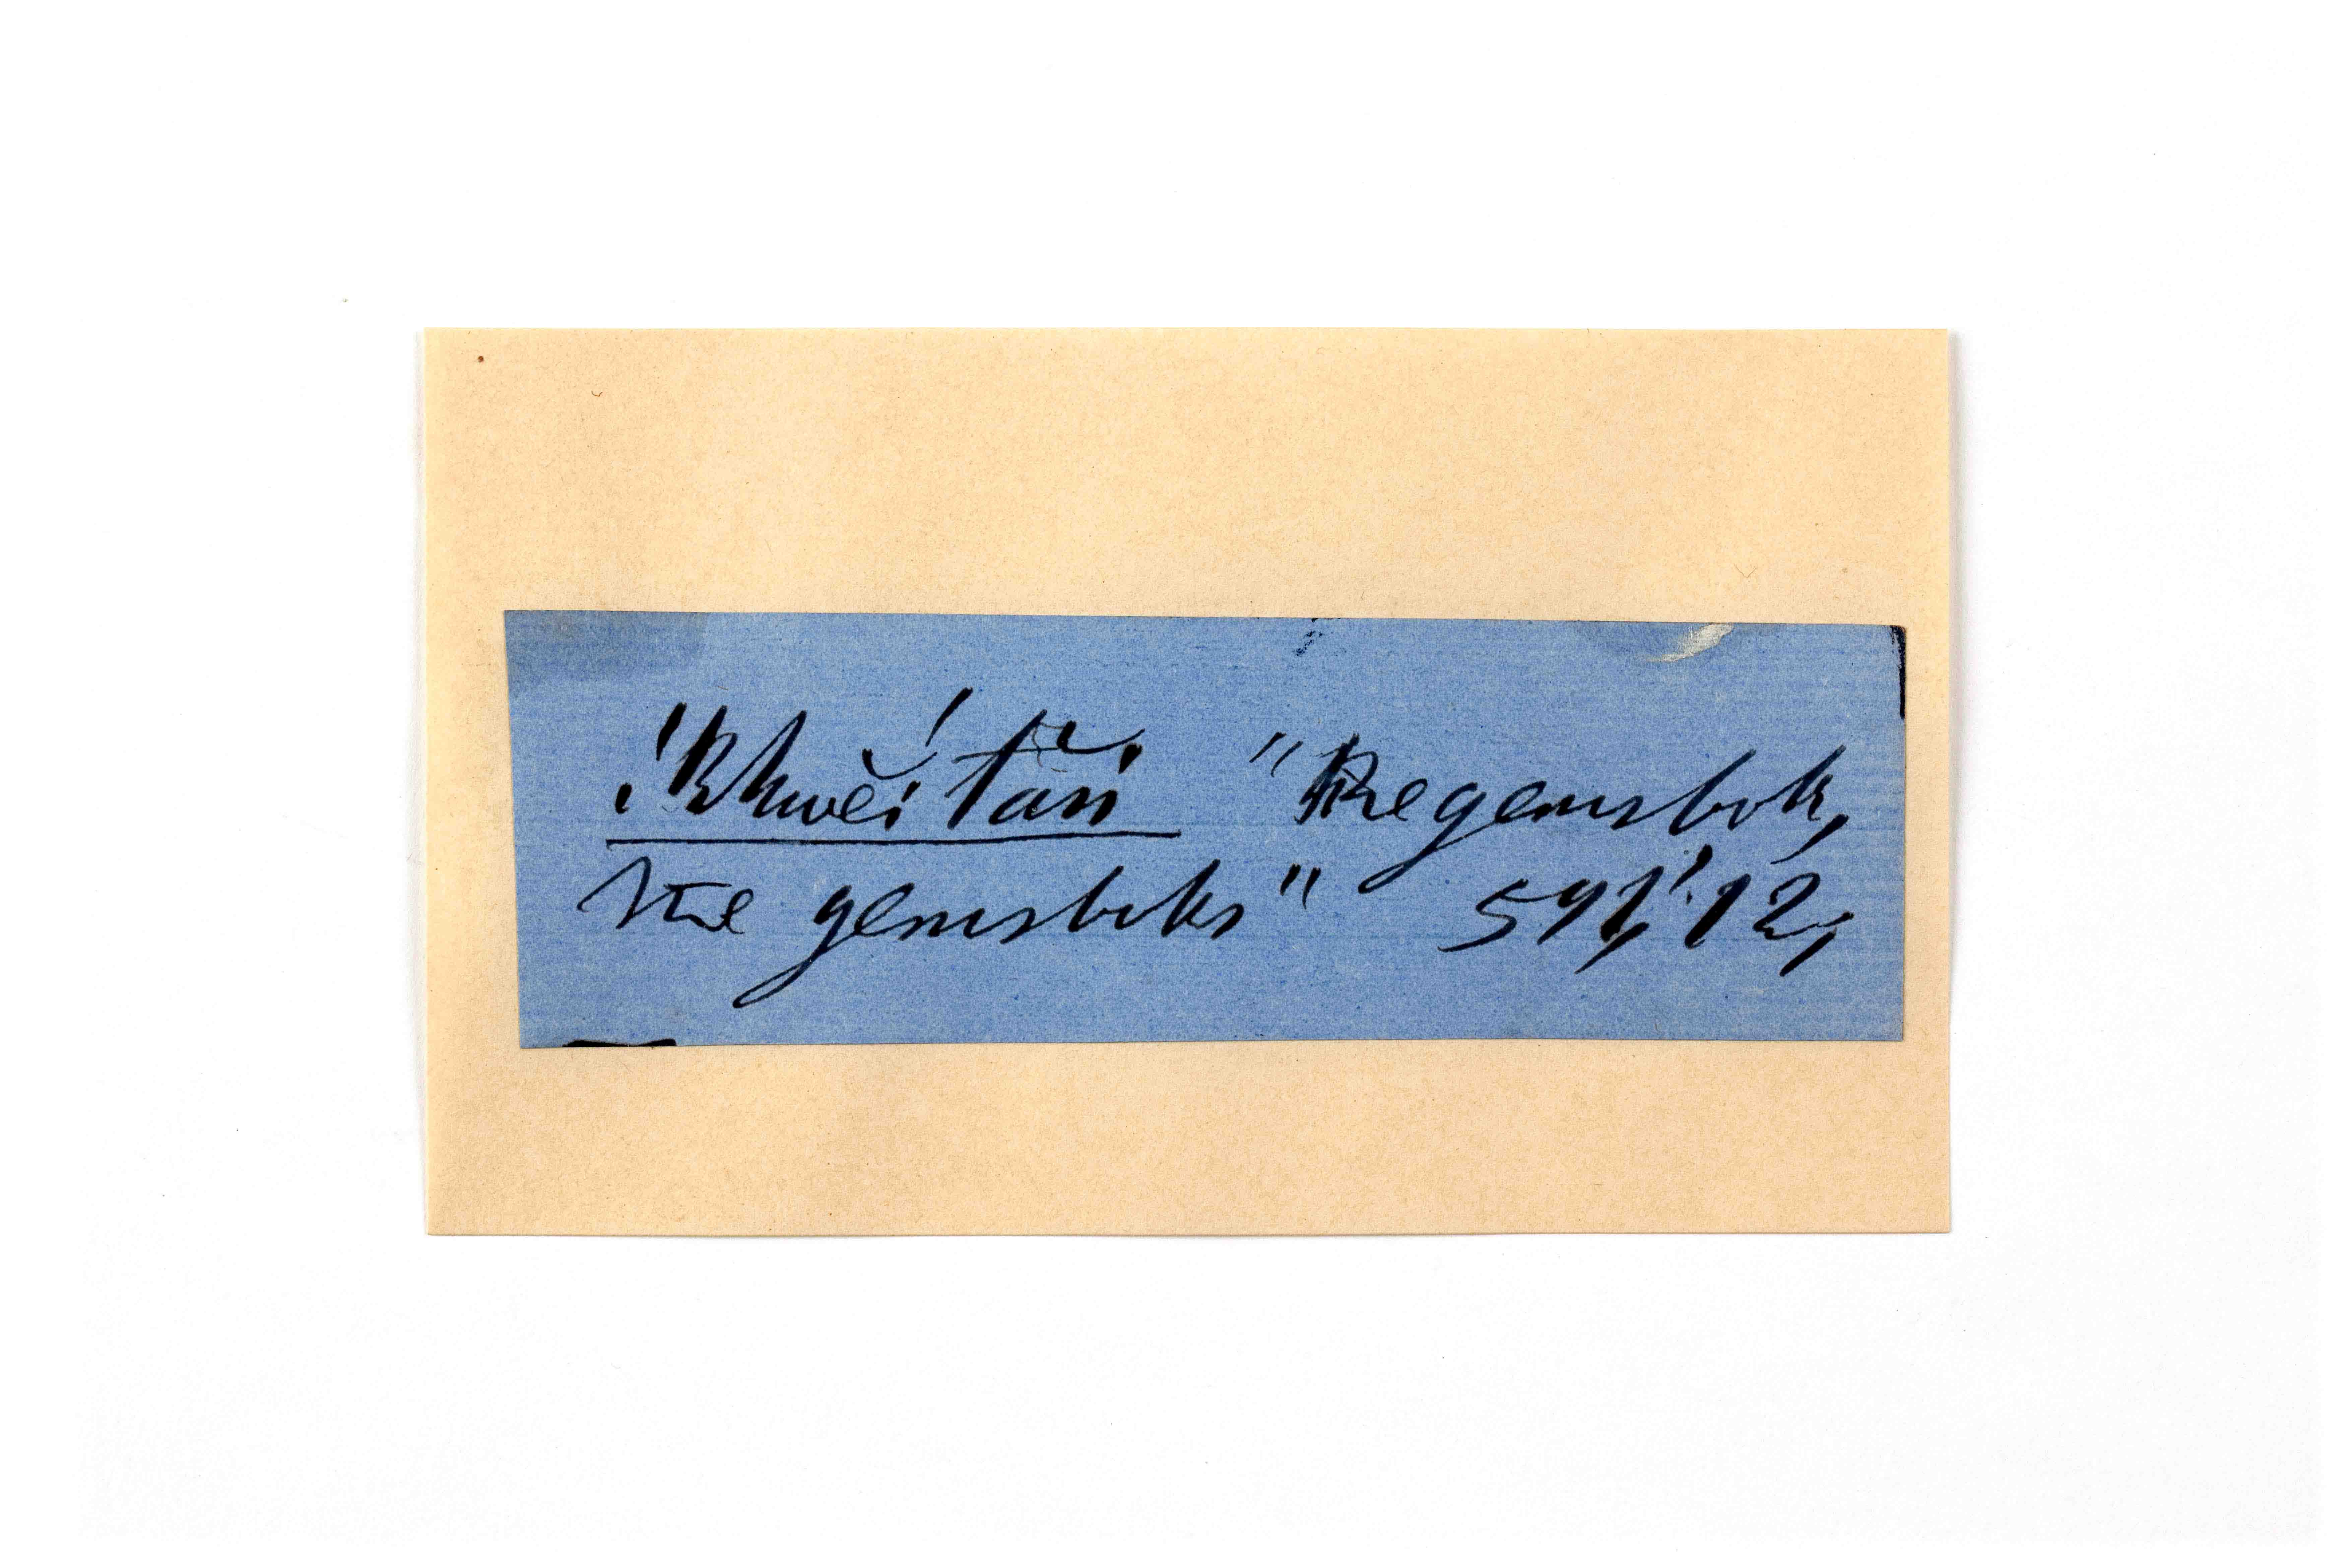 !khwĕi tăn "the gemsbok,
the gemsboks" 591, 12,